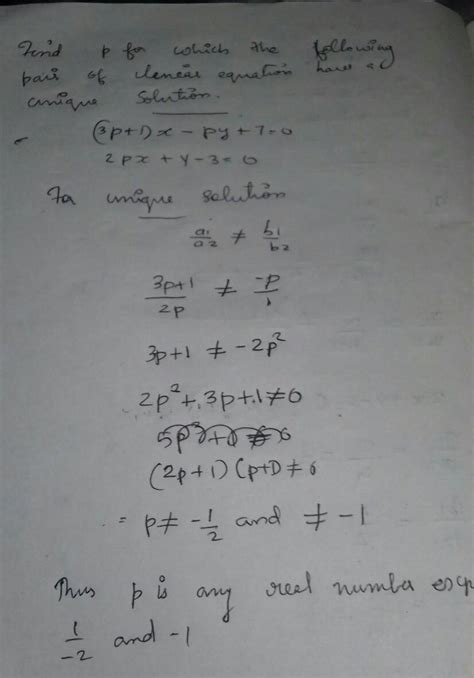 Find p for which the following
pair of lineear equation have a
unique solution.
(3p+1)x - py + 7 = 0
2px + y - 3 = 0
Fa unique solution
a1/a2 ≠ b1/b2
3p+1/2p ≠ -p/1
3p+1 ≠ -2p²
2p² + 3p + 1 ≠ 0
(2p+1) (p+1) ≠ 0
= p ≠ -1/2 and ≠ -1
Thus p is any reel number
1/-2 and -1